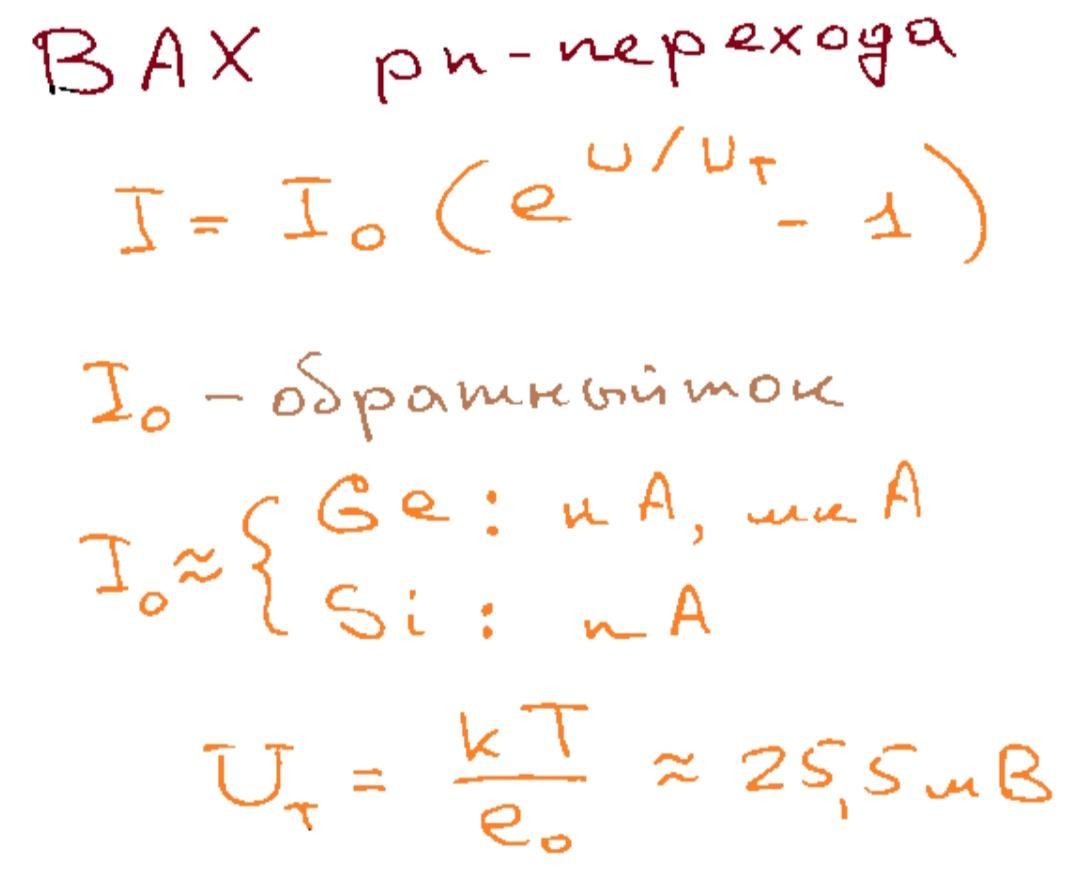 ВАХ pn-перехода
I = I₀ (e^{U/U_T} - 1)
I₀ - обратный ток
I₀ ≈ { Ge: нА, мкА
Si: пА
U_T = kT/e₀ ≈ 25,5 мВ